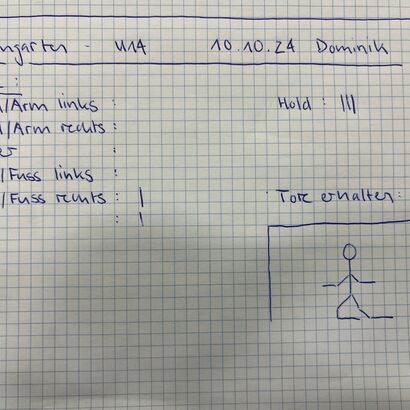 ngarten - U14 10.10.24 Dominik
:
/Arm links : Hold : |||
/Arm rechts :
er :
/Fuss links :
/Fuss rechts : | Tore erhalten:
: |